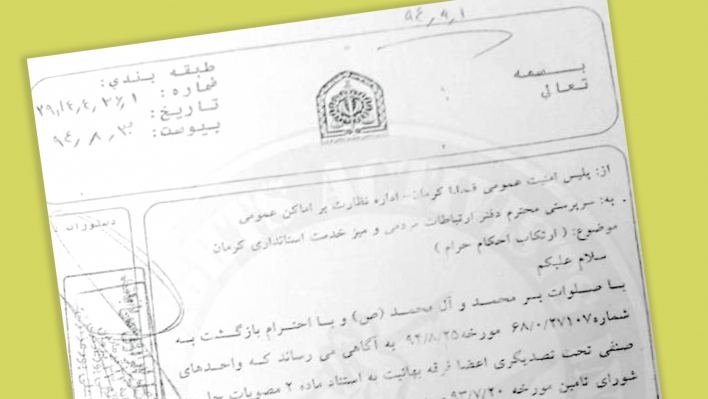 ۹٤٫۹٫۱
بسمه
تعالی
طبقه بندی:
شماره:
تاریخ:
پیوست:
دستورات
از: پلیس امنیت عمومی فاتحا کرمان - اداره نظارت بر اماکن عمومی
به: سرپرستی محترم دفتر ارتباطات مردمی و میز خدمت استانداری کرمان
موضوع: ( ارتکاب احکام حرام )
سلام علیکم
با صلوات بر محمد و آل محمد (ص) و با احترام بازگشت به
شماره ۶۸/۰/۲۷۱۰۷ مورخه ۹۴/۸/۲۵ به آگاهی می رساند که واحدهای
صنفی تحت تصدیگری اعضا فرقه بهائیت به استناد ماده ۲ مصوبات
شورای تامین مورخه ۹۳/۷/۲۰